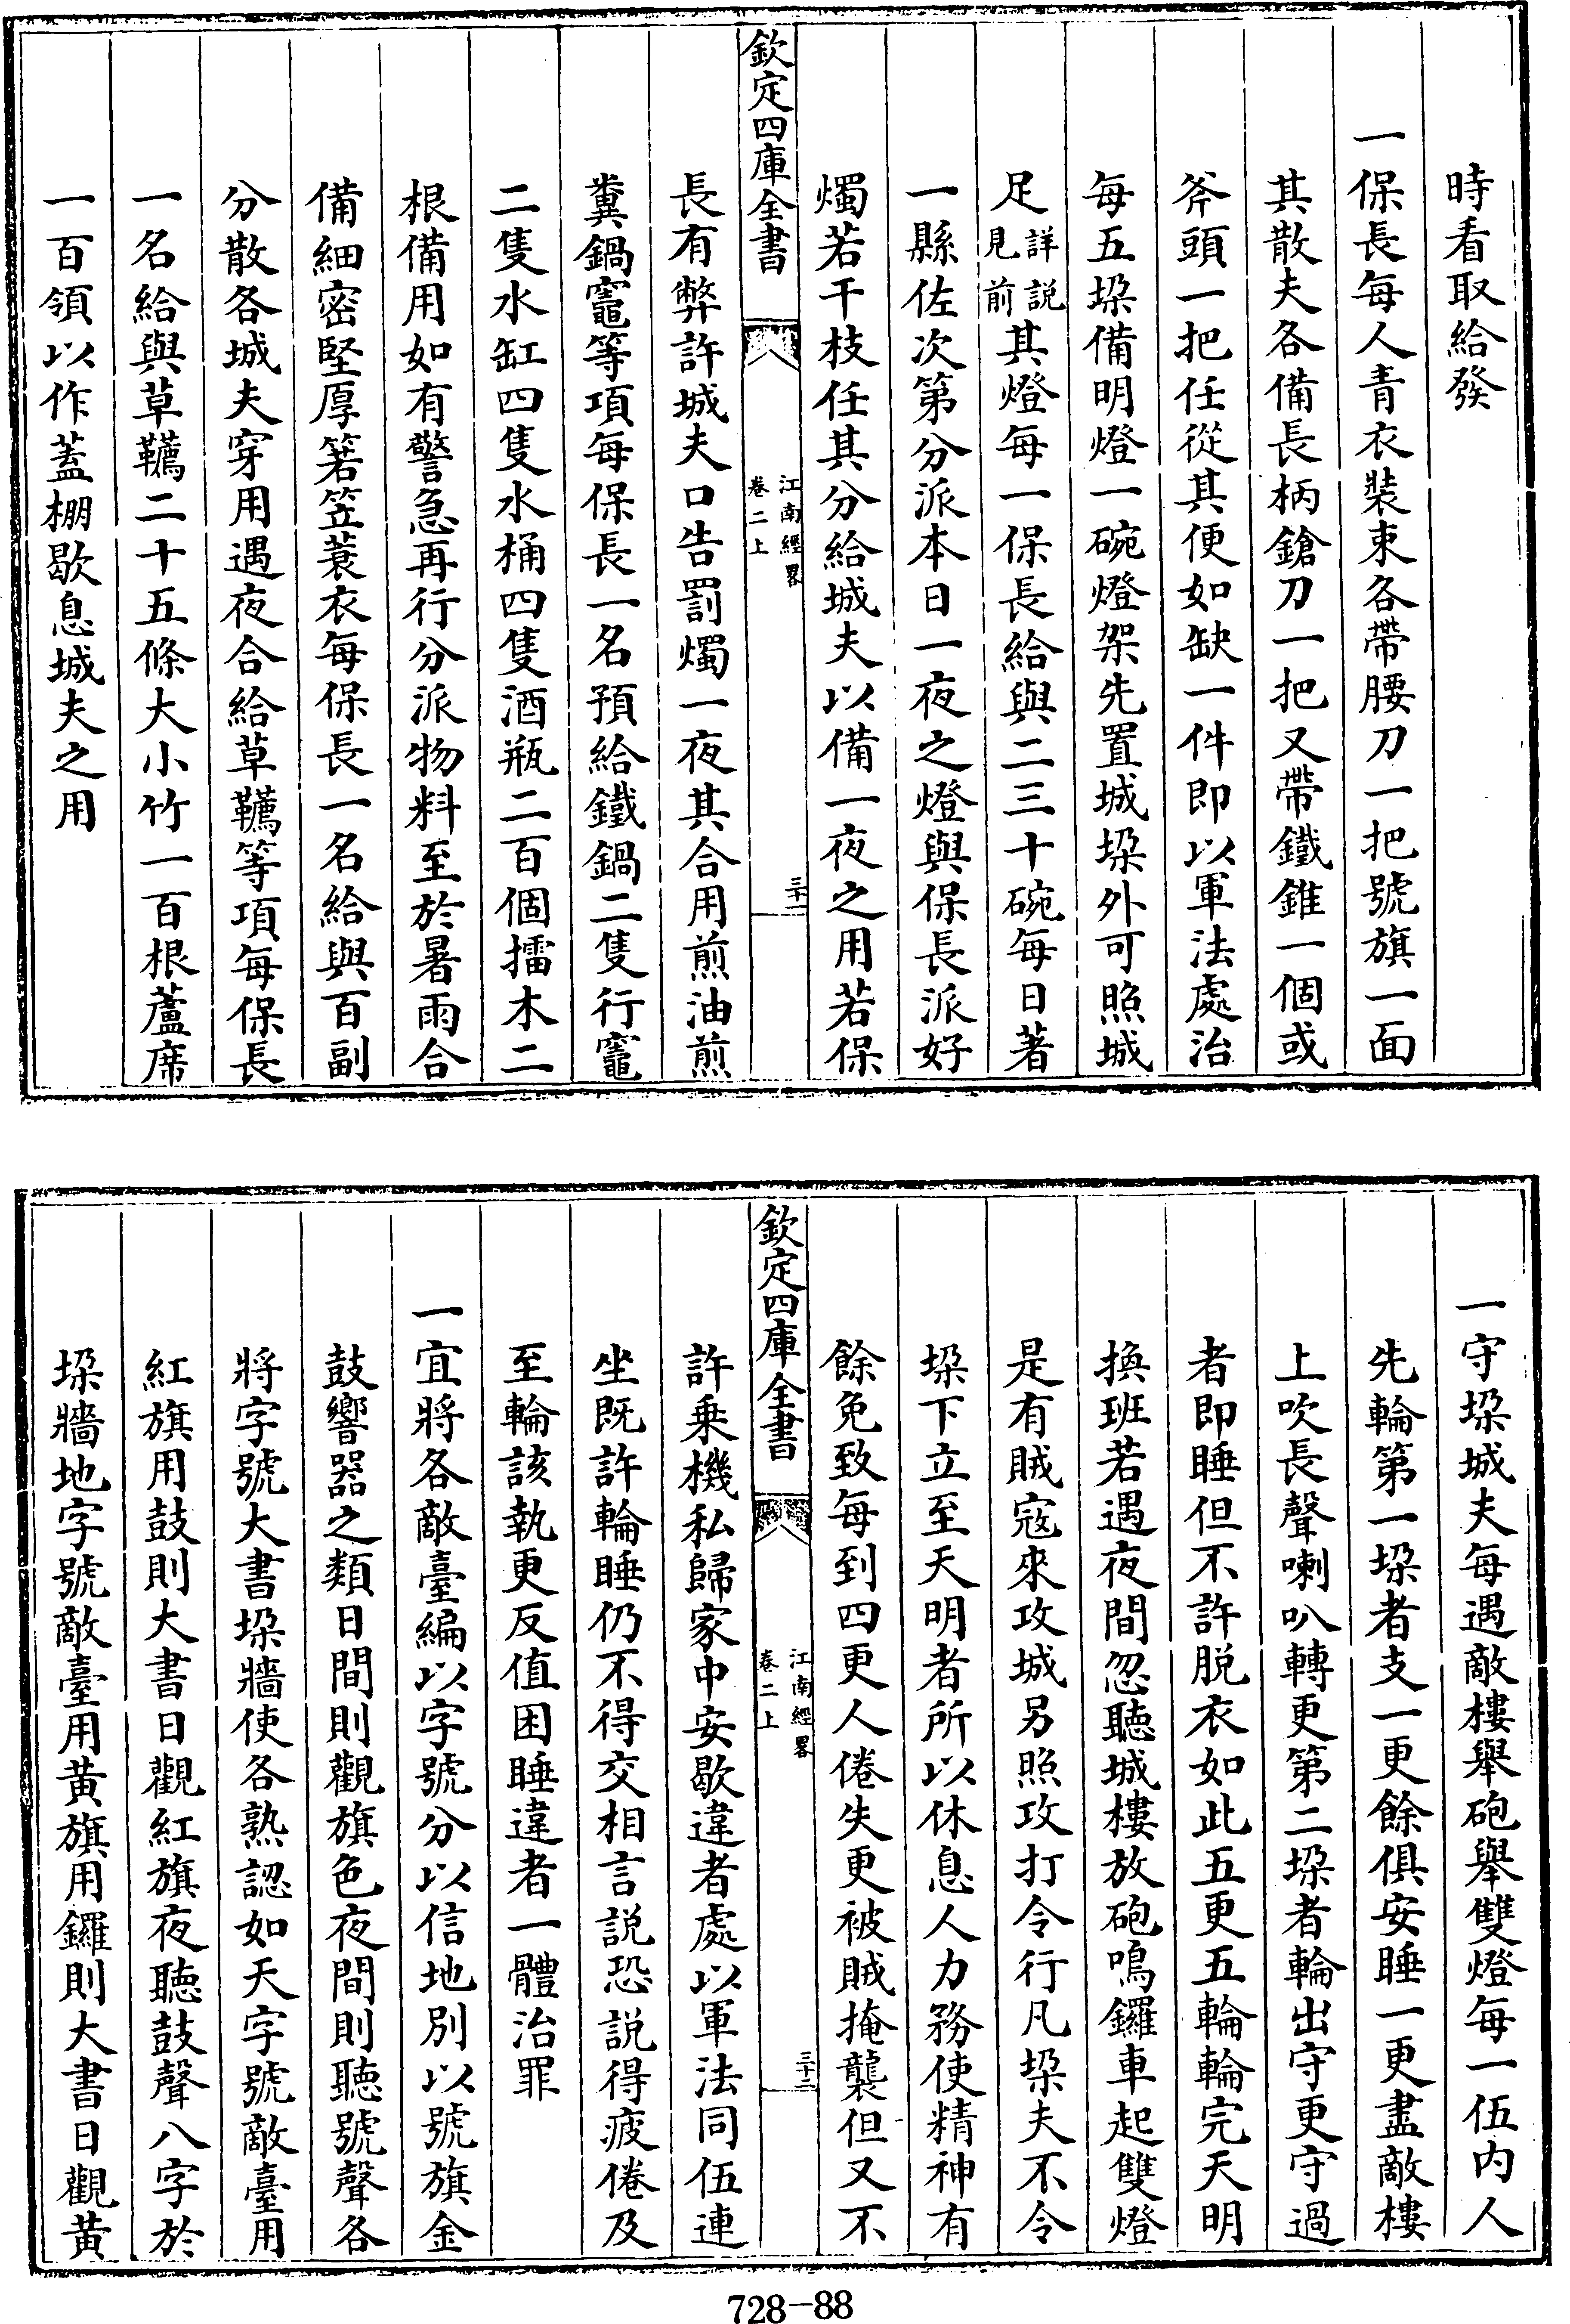 時看取給發
一保長每人青衣裝束各帶腰刀一把號旗一面
其散夫各備長柄鎗刀一把又帶鐵錐一個或
斧頭一把任從其便如缺一件即以軍法處治
每五垜備明燈一碗燈架先置城垜外可照城
足詳説見前其燈每一保長給與二三十碗每日著
一縣佐次第分派本日一夜之燈與保長派好
燭若干枝任其分給城夫以備一夜之用若保
欽定四庫全書
江南經畧
卷二上
三十一
長有弊許城夫口告罰燭一夜其合用煎油煎
糞鍋竈等項每保長一名預給鐵鍋二隻行竈
二隻水缸四隻水桶四隻酒瓶二百個擂木二
根備用如有警急再行分派物料至於暑雨合
備細密堅厚箬笠蓑衣每保長一名給與百副
分散各城夫穿用遇夜合給草韉等項每保長
一名給與草韉二十五條大小竹一百根蘆席
一百領以作蓋棚歇息城夫之用
一守垜城夫每遇敵樓舉砲舉雙燈每一伍内人
先輪第一垜者支一更餘俱安睡一更盡敵樓
上吹長聲喇叭轉更第二垜者輪出守更守過
者即睡但不許脱衣如此五更五輪輪完天明
換班若遇夜間忽聽城樓放砲鳴鑼車起雙燈
是有賊寇來攻城另照攻打令行凡垜夫不令
垜下立至天明者所以休息人力務使精神有
餘免致每到四更人倦失更被賊掩襲但又不
欽定四庫全書
江南經畧
卷二上
三十二
許乗機私歸家中安歇違者處以軍法同伍連
坐既許輪睡仍不得交相言説恐説得疲倦及
至輪該執更反值困睡違者一體治罪
一宜將各敵臺編以字號分以信地別以號旗金
鼓響器之類日間則觀旗色夜間則聽號聲各
將字號大書垜牆使各熟認如天字號敵臺用
紅旗用鼓則大書日觀紅旗夜聽鼓聲八字於
垜牆地字號敵臺用黄旗用鑼則大書日觀黄
728-88